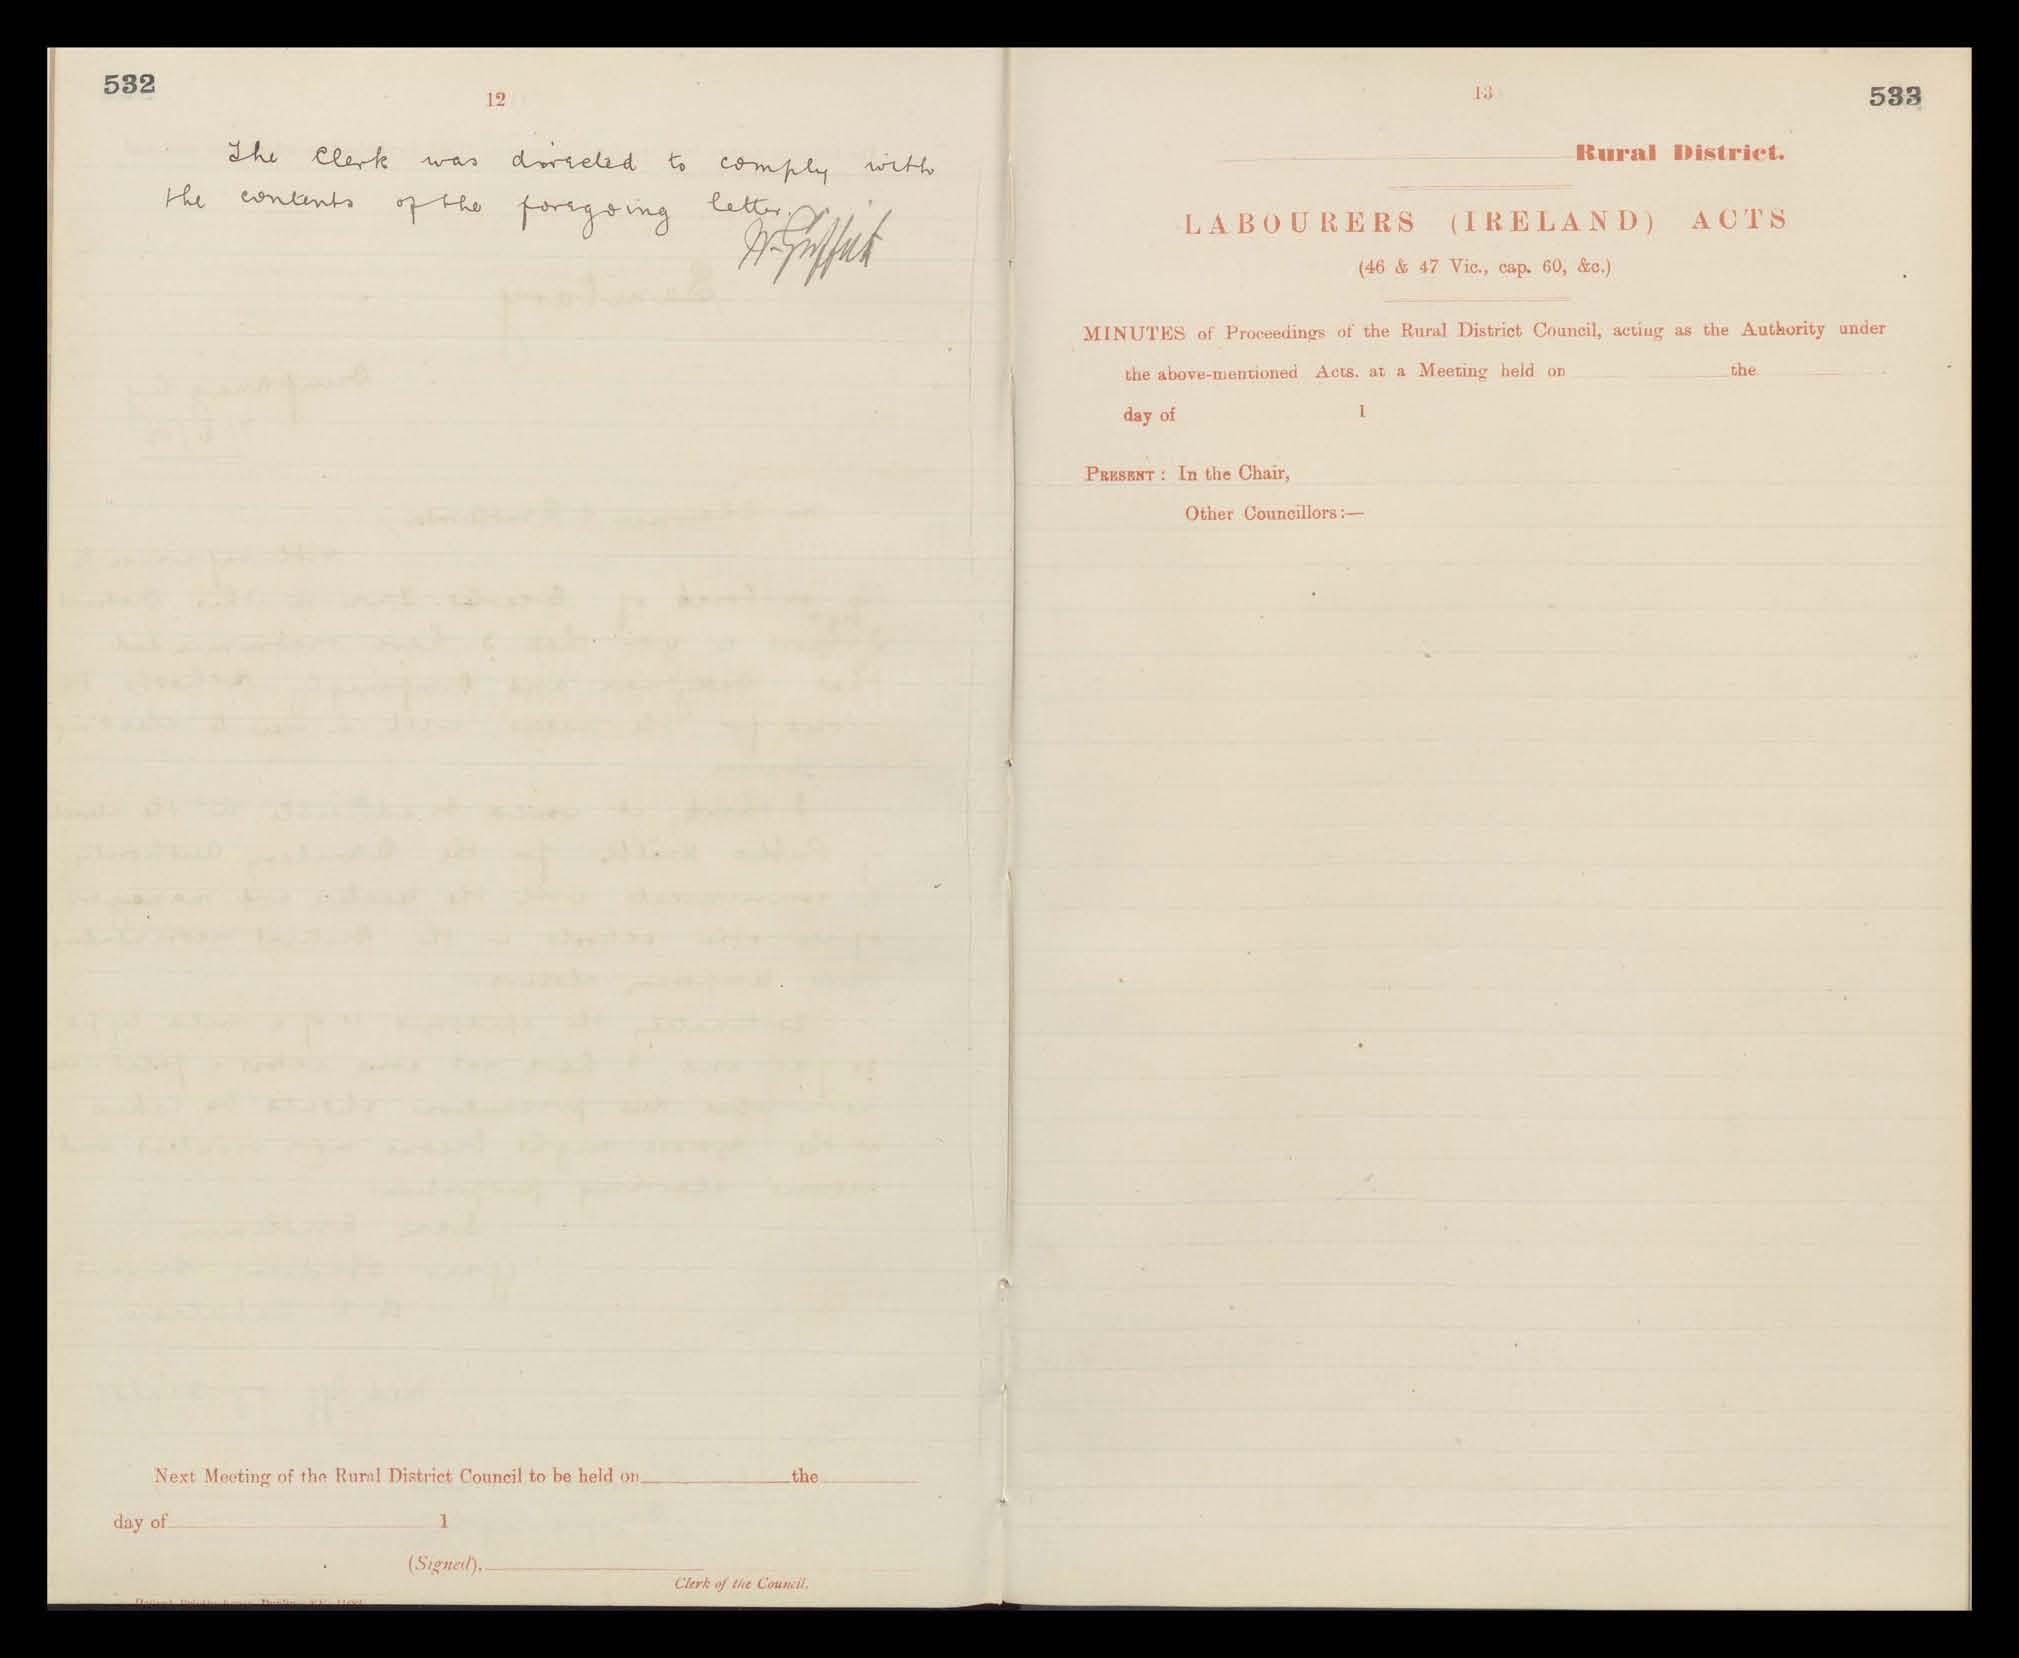 532
12
The Clerk was directed to comply with
the contents of the foregoing letter.
W. Griffith
Next Meeting of the Rural District Council to be held on the
day of 1
(Signed),
Clerk of the Council.
13
533
Rural District.
LABOURERS (IRELAND) ACTS
(46 & 47 Vic., cap. 60, &c.)
MINUTES of Proceedings of the Rural District Council, acting as the Authority under
the above-mentioned Acts, at a Meeting held on the
day of 1
PRESENT : In the Chair,
Other Councillors:—